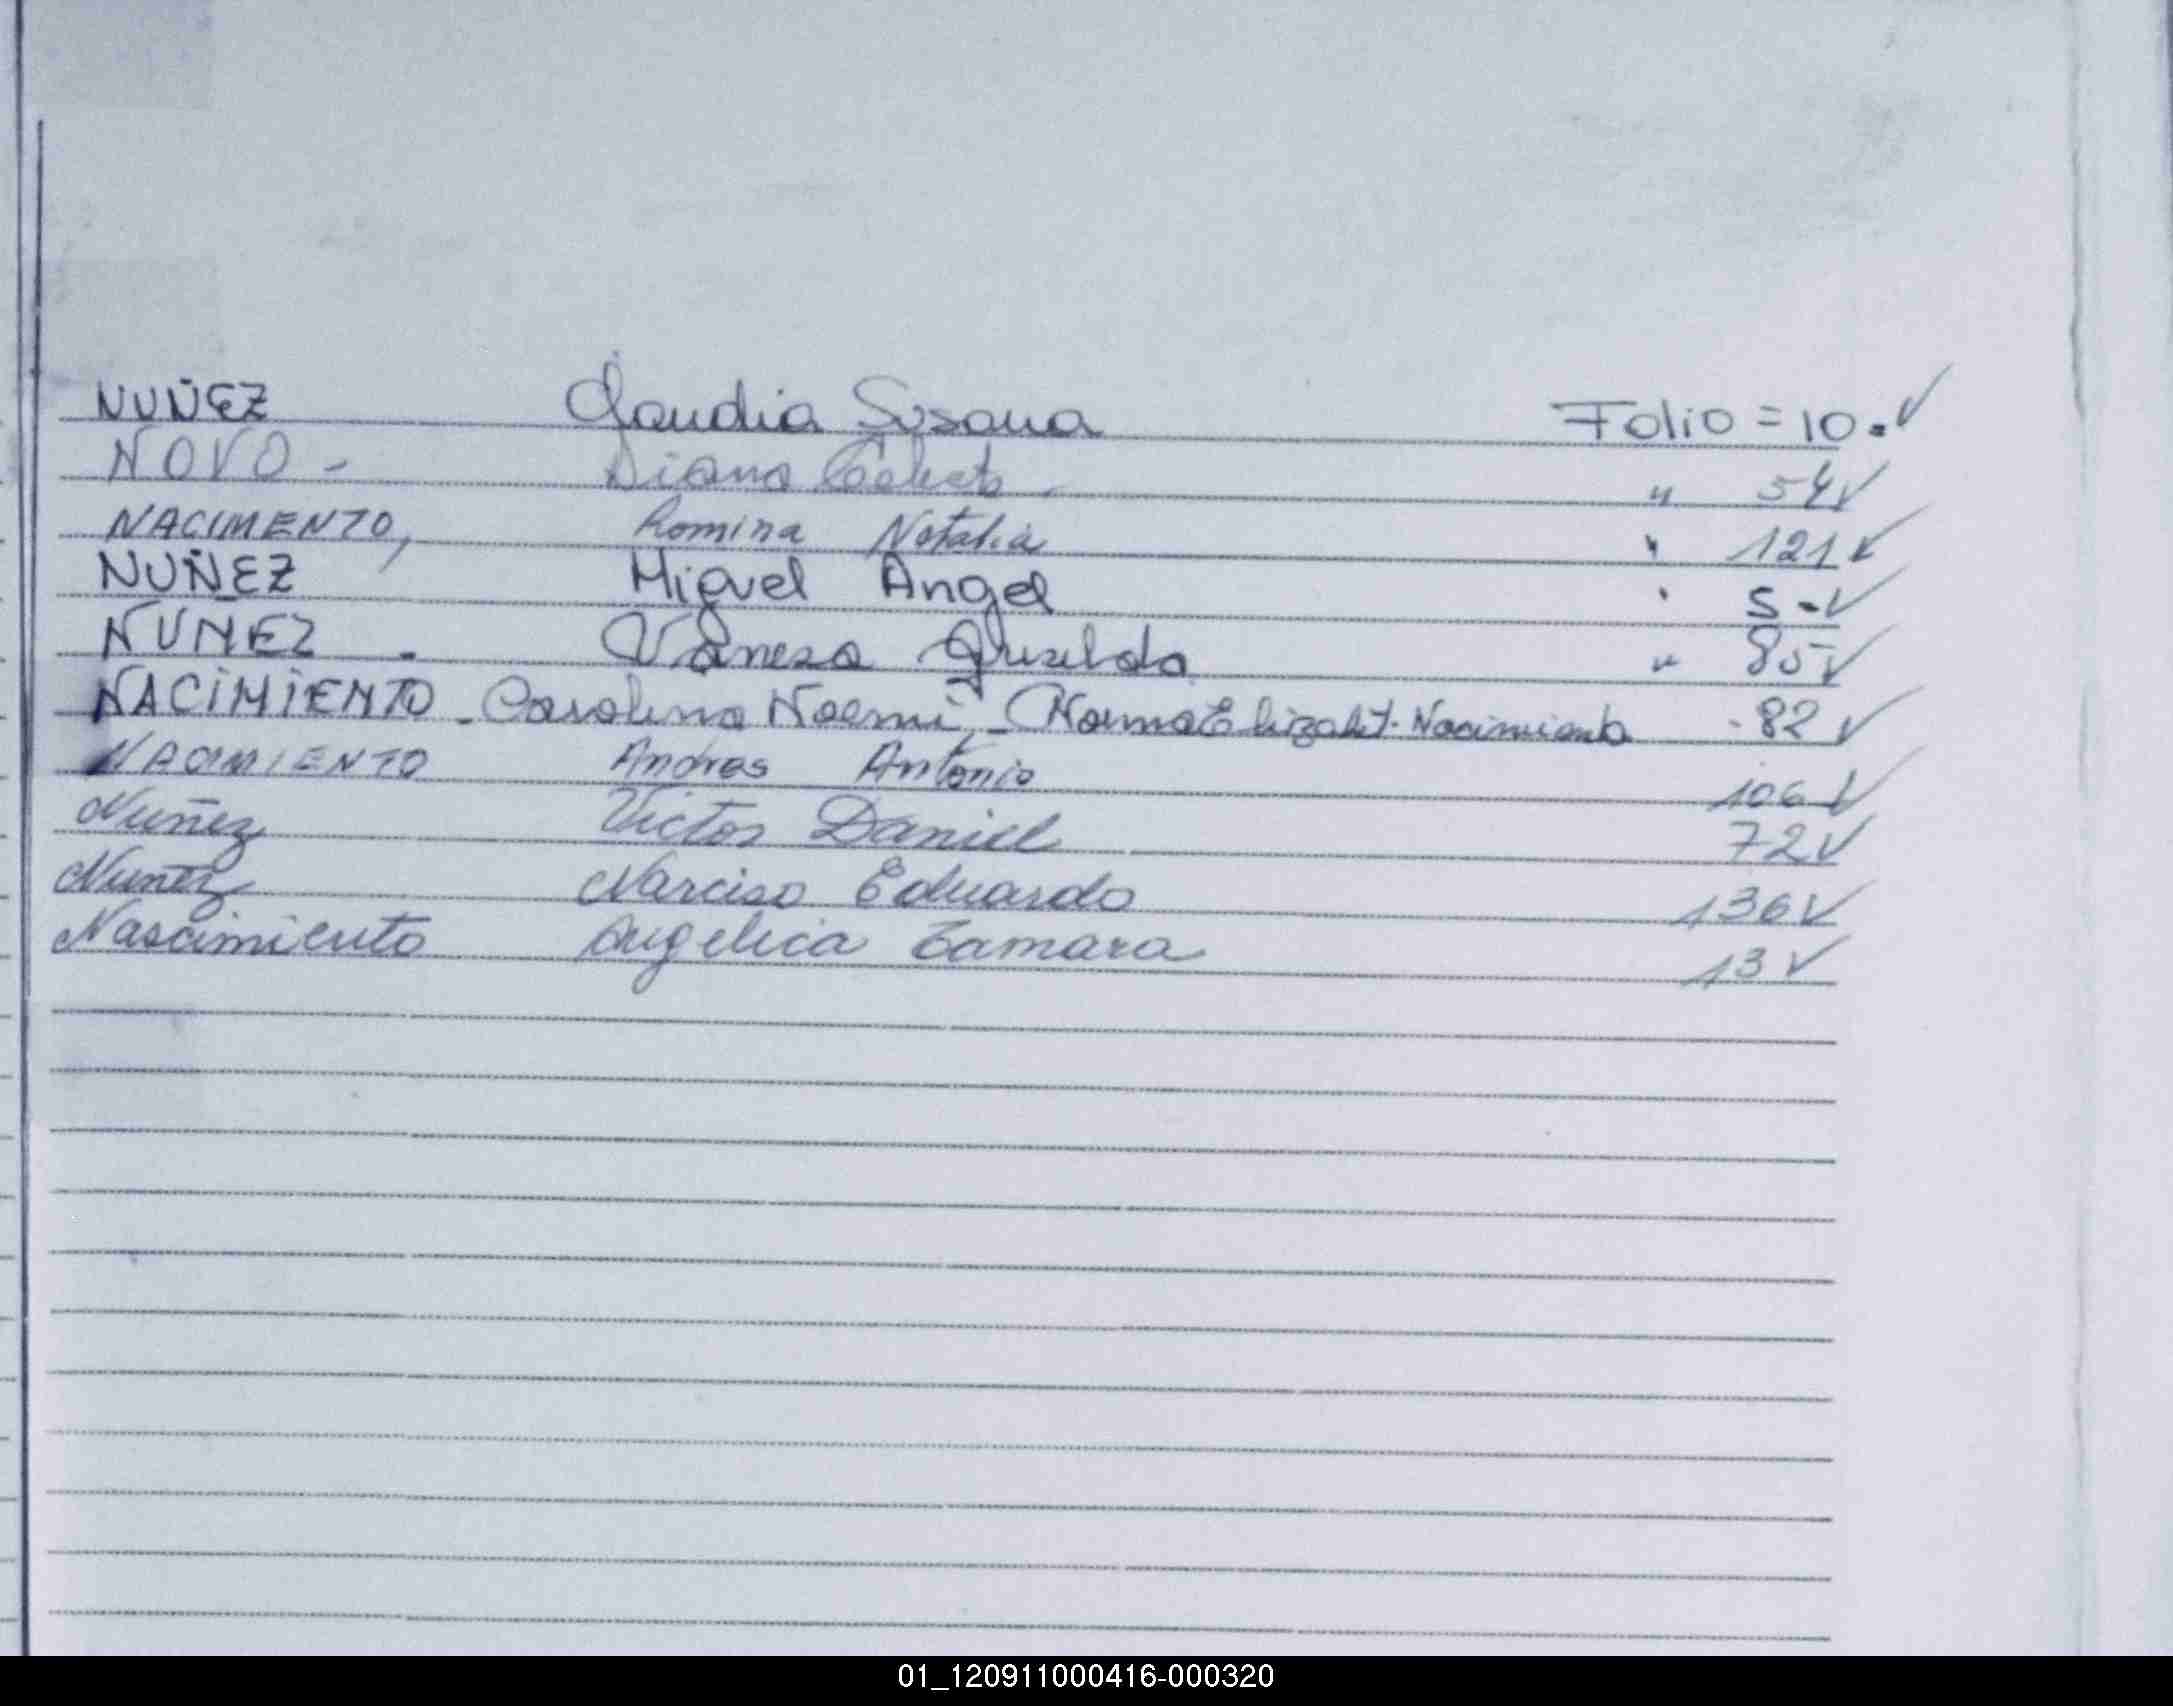 NUÑEZ Claudia Susana Folio = 10. ✓
NOVO - Diana Celeste - " 54 ✓
NACIMENTO, Romina Natalia " 121 ✓
NUÑEZ Miguel Angel " 5 - ✓
NUÑEZ - Vanesa Griselda " 85 ✓
NACIMIENTO - Carolina Noemi - (Norma Elizabet - Nacimiento - 82 ✓
NACIMIENTO Andres Antonio 106 ✓
Nuñez Victor Daniel 72 ✓
Nuñez Narciso Eduardo 136 ✓
Nascimiento Angelica Tamara 13 ✓
01_120911000416-000320